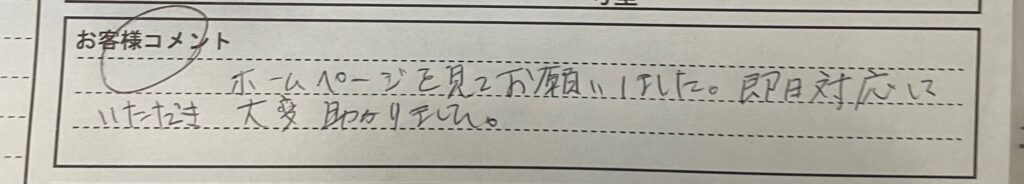 お客様コメント
ホームページを見てお願いしました。即日対応して
いただき 大変 助かりました。